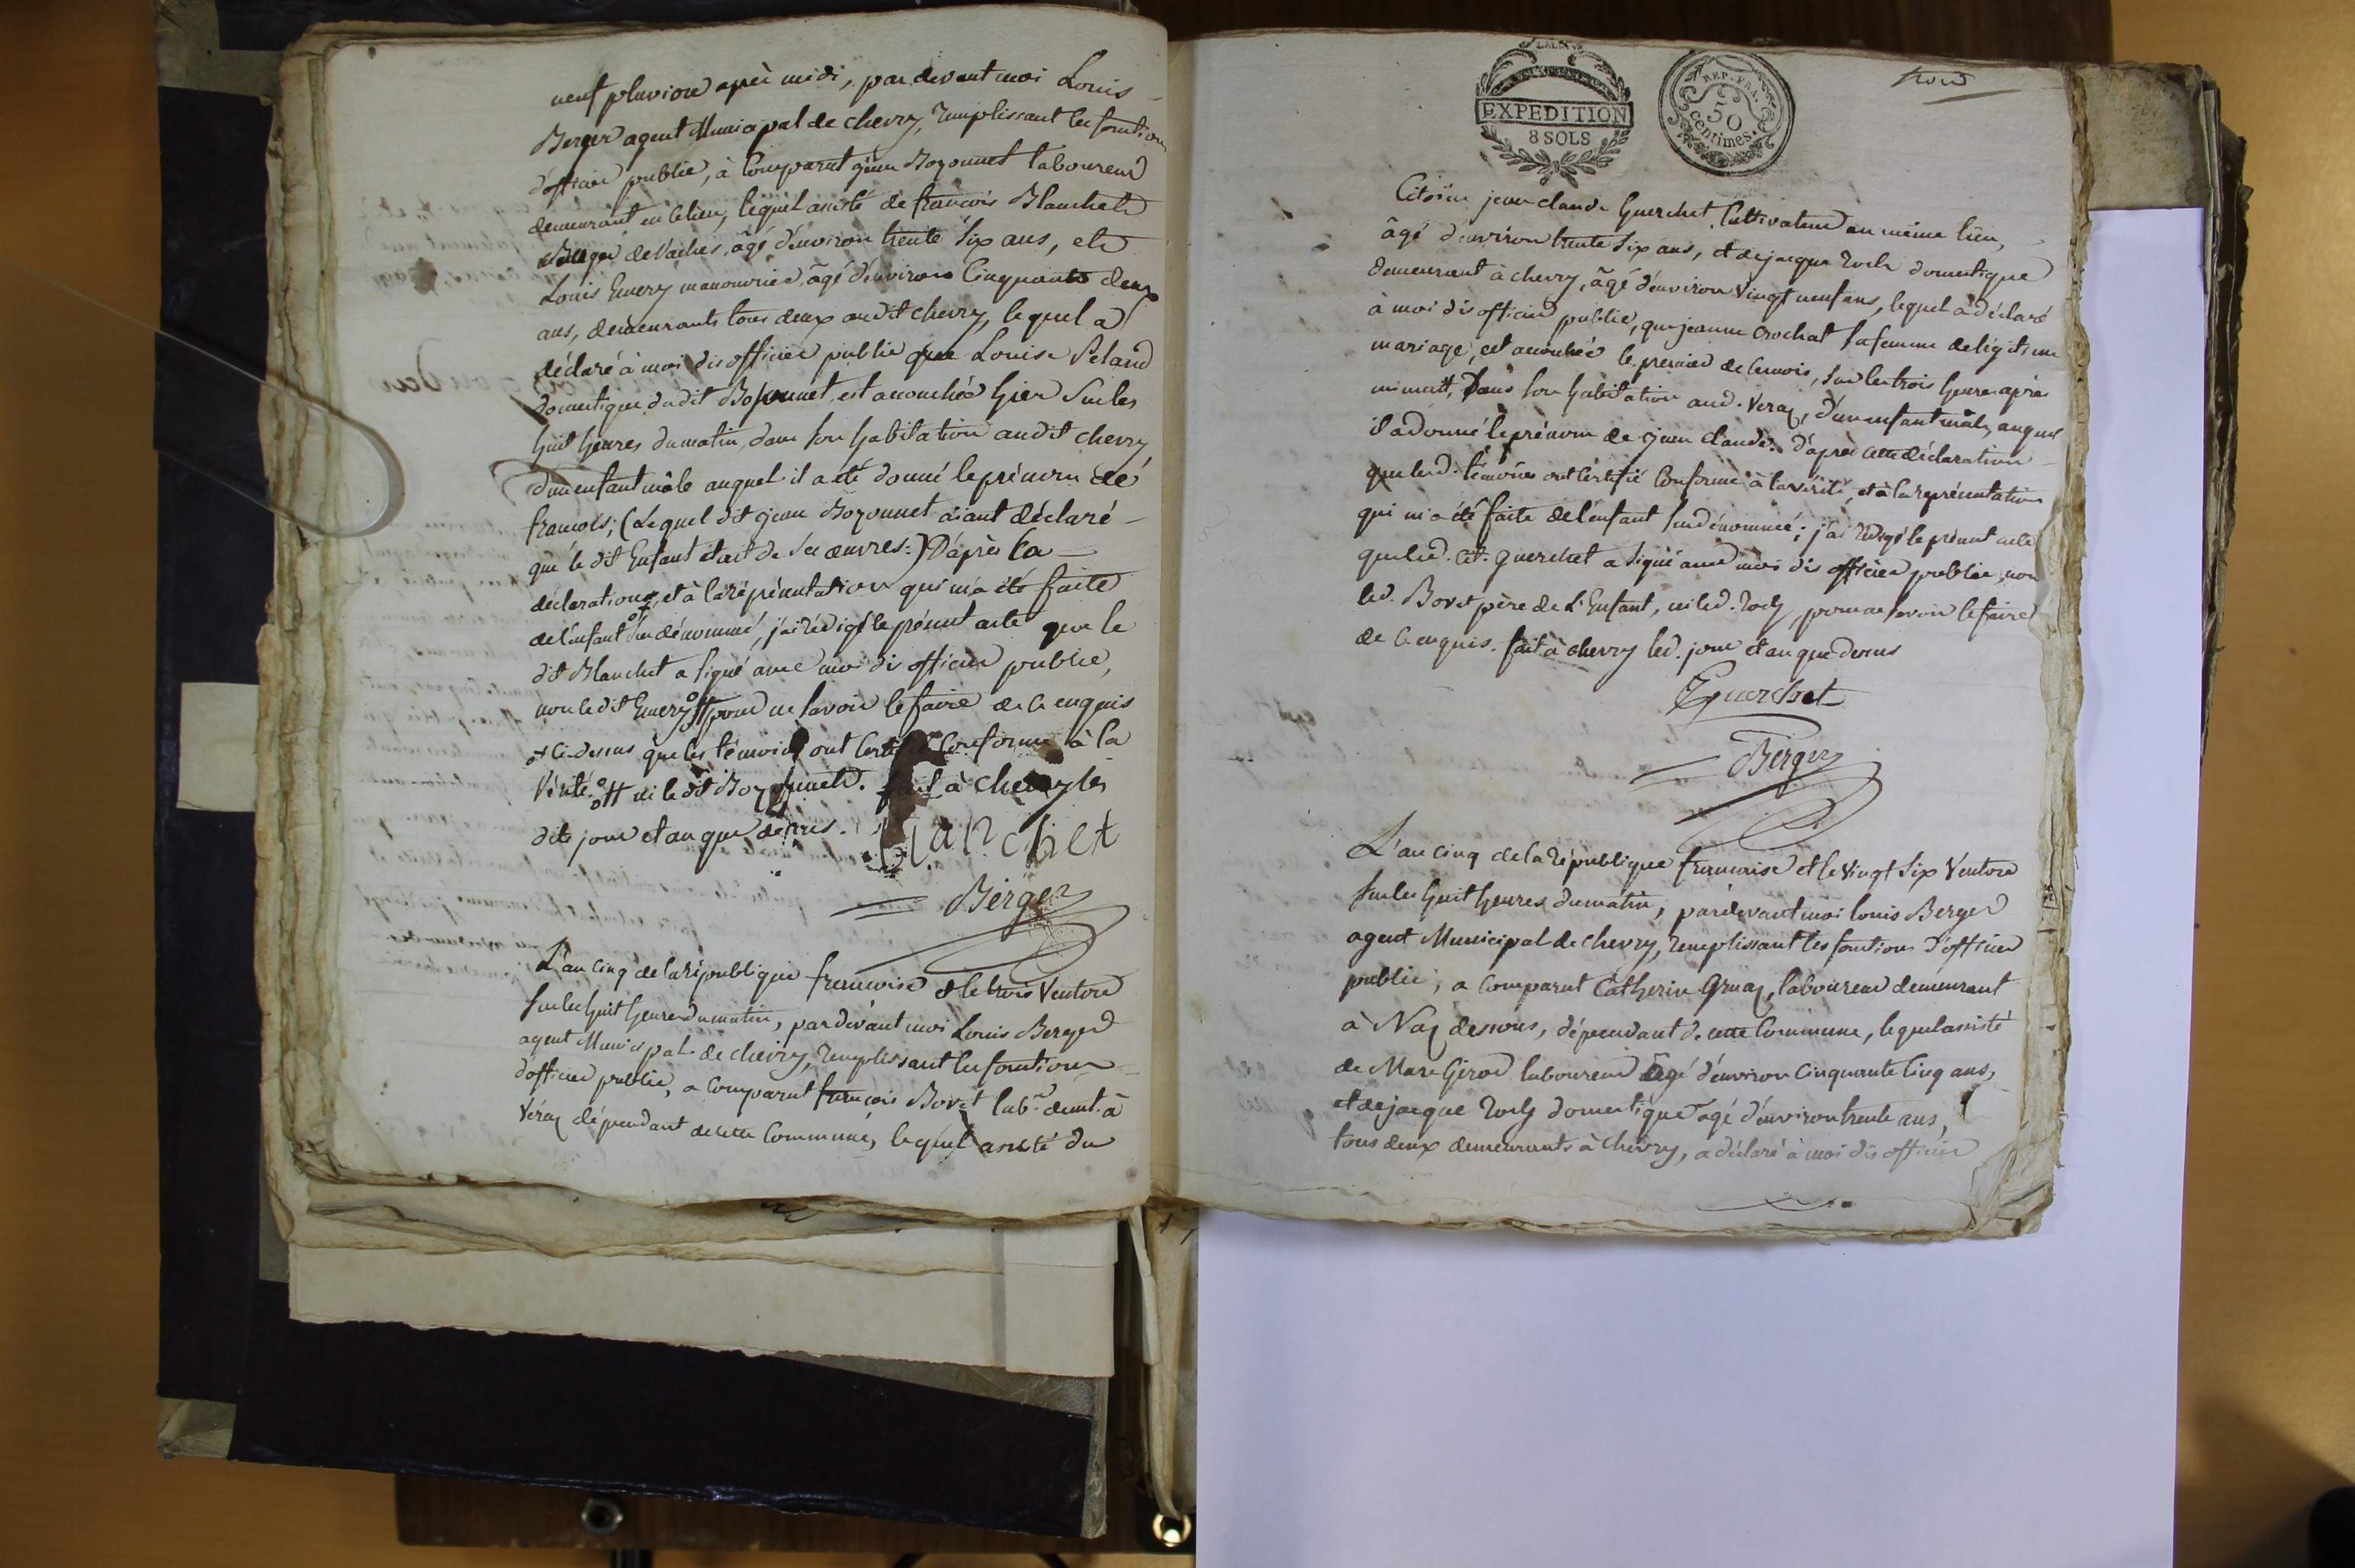 neuf pluviose après midi, par devant moi Louis
Berger agent Municipal de chevry, remplissant les fonctions
d'officier public, à Comparut jean Boyonnet laboureur
demeurant en ce lieu, lequel assisté de françois Blanchet
Berger de Vaches, âgé d'environ trente six ans, et
Louis Emery manouvrier, âgé d'environ Cinquante deux
ans, demeurants tous deux audit chevry, lequel a
déclaré à moi dis officier public que Louise
domestique dudit Boyonnet, est accouchée hier Sur les
huit heures du matin, dans son habitation audit chevry
d'un enfant mâle auquel il a été donné le prénom de
françois; (Lequel dit jean Boyonnet aiant déclaré
que le dit Enfant étoit de ses œuvres:) D'après la
déclaration, et à la réprésentation qui m'a été faite
de l'enfant susdénommé, j'ai rédigé le présent acte que le
dit Blanchet a signé avec moi dis officier public,
non le dit Emery pour ne savoir le faire de ce enquis
ci-dessus que les témoins ont Certifié Conforme à la
Vérité. ni le dit Boyonnet. fait à chevry les
dits jour et an que dessus.
blanchet
Berger
L'an cinq de la république françoise et le trois Ventose
sur les huit heures du matin, pardevant moi Louis Berger
agent Municipal de chevry, remplissant les fonctions
d'officier public, a comparut françois Bovet lab.r demt. à
Véraz dépendant de cette Commune, lequel assisté du
EXPEDITION
8 SOLS
REP. FRA.
50
centimes.
trois
Citoïen jean claude Guerchet Cultivateur au même lieu,
âgé d'environ trente six ans, et de jacque Roch domestique
demeurant à chevry, âgé d'environ Vingt neuf ans, lequel à déclaré
à moi dis officier public, que jeanne Crochat sa femme de légitime
mariage, est accouchée le premier de ce mois, sur les trois heures après
minuit, Dans son habitation aud. Veraz, d'un enfant mâle, auquel
il a donné le prénom de jean claude. D'après cette déclaration
que les d. témoins ont Certifié Conforme à la vérité, et à la représentation
qui m'a été faite de l'enfant susdénommé; j'ai rédigé le présent acte
que led. Cit. Guerchet a signé avec moi dis officier public, non
led. Bovet père de L'Enfant, ni led. Roch, pour ne savoir le faire
de ce enquis. fait à chevry led. jour et an que dessus
Guerchet
Berger
L'an cinq de la république françoise et le Vingt Six Ventose
sur les huit heures du matin, pardevant moi louis Berger
agent Municipal de chevry, remplissant les fonctions d'officier
public, a comparut Catherin Gruaz, laboureur demeurant
à Naz dessous, dépendant de cette Commune, lequel assisté
de Marc Girod laboureur âgé d'environ Cinquante Cinq ans,
et de jacque Roch domestique âgé d'environ trente ans,
tous deux demeurants à chevry, a déclaré à moi dis officier